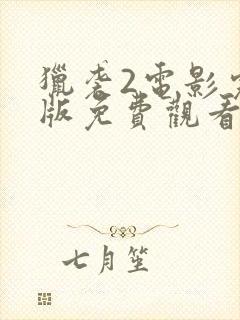 獵袭2電影完
版免費觀看
七月笙